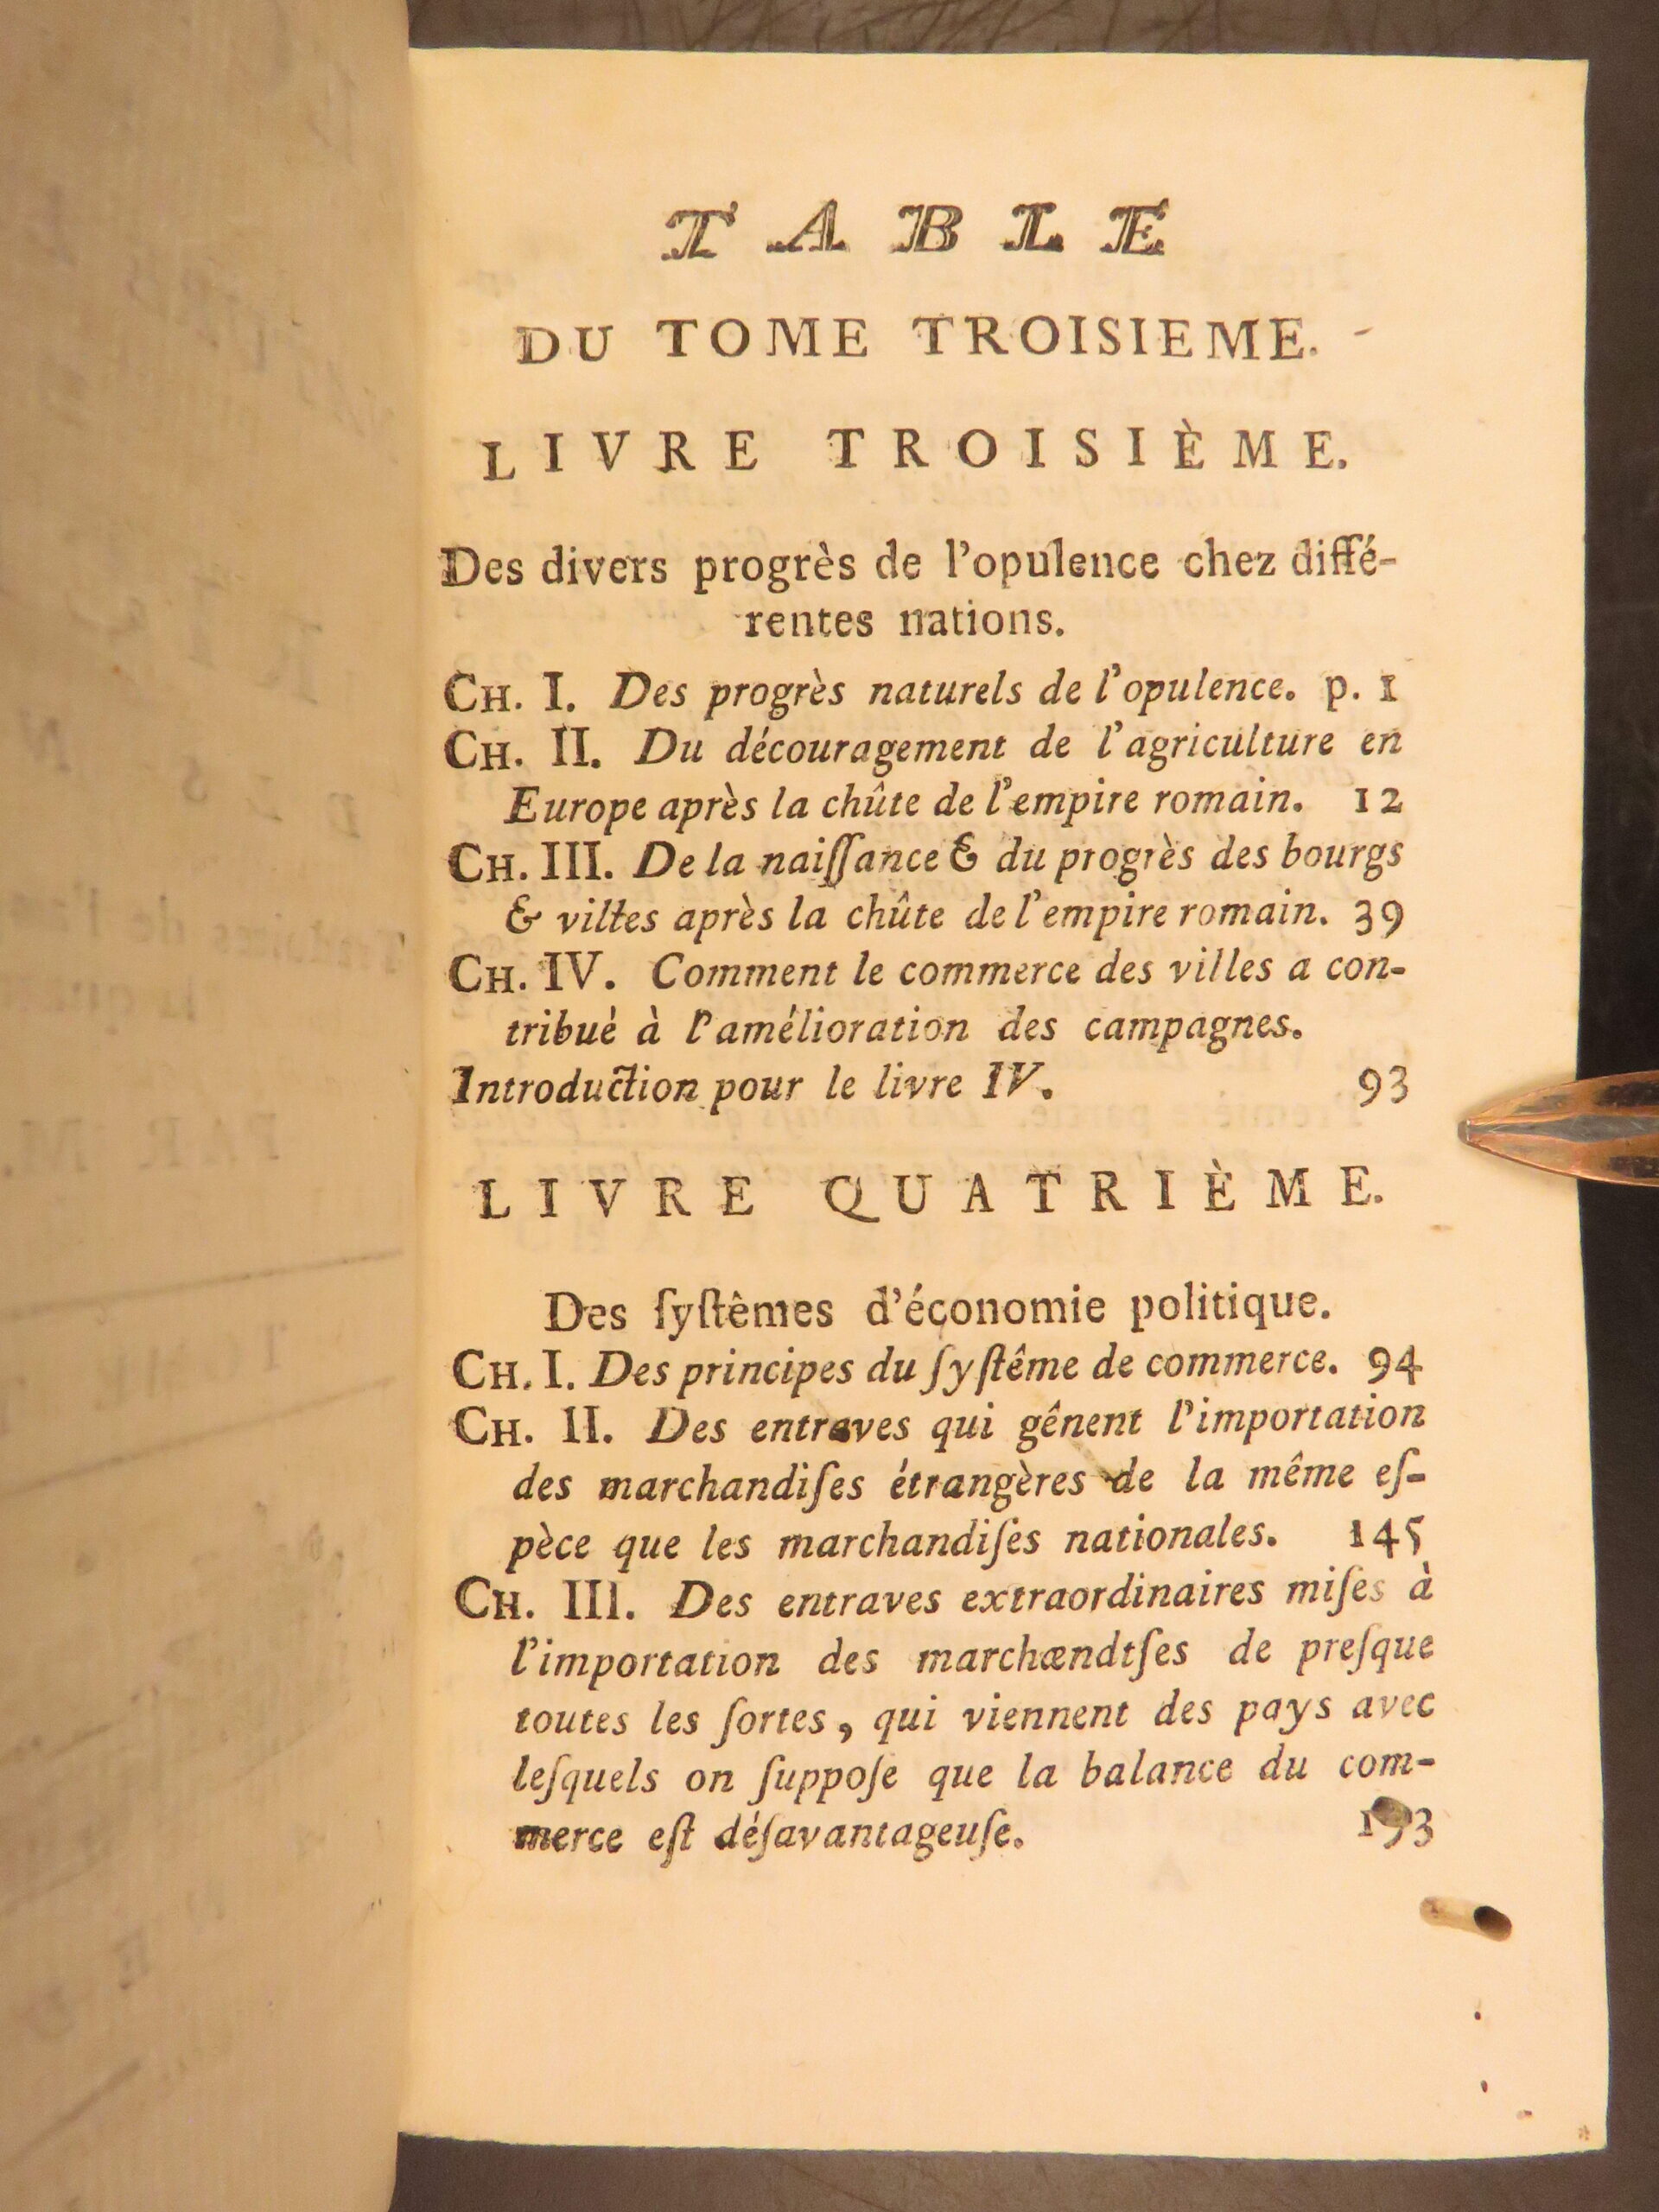 TABLE
DU TOME TROISIEME.
LIVRE TROISIÈME.
Des divers progrès de l'opulence chez diffé-
rentes nations.
CH. I. Des progrès naturels de l'opulence. p. 1
CH. II. Du découragement de l'agriculture en
Europe après la chûte de l'empire romain. 12
CH. III. De la naiſſance & du progrès des bourgs
& villes après la chûte de l'empire romain. 39
CH. IV. Comment le commerce des villes a con-
tribué à l'amélioration des campagnes.
Introduction pour le livre IV. 93
LIVRE QUATRIÈME.
Des ſyſtêmes d'économie politique.
CH. I. Des principes du ſyſtême de commerce. 94
CH. II. Des entraves qui gênent l'importation
des marchandiſes étrangères de la même eſ-
pèce que les marchandiſes nationales. 145
CH. III. Des entraves extraordinaires miſes à
l'importation des marchændtſes de preſque
toutes les ſortes, qui viennent des pays avec
leſquels on ſuppoſe que la balance du com-
merce eſt déſavantageuſe. 193